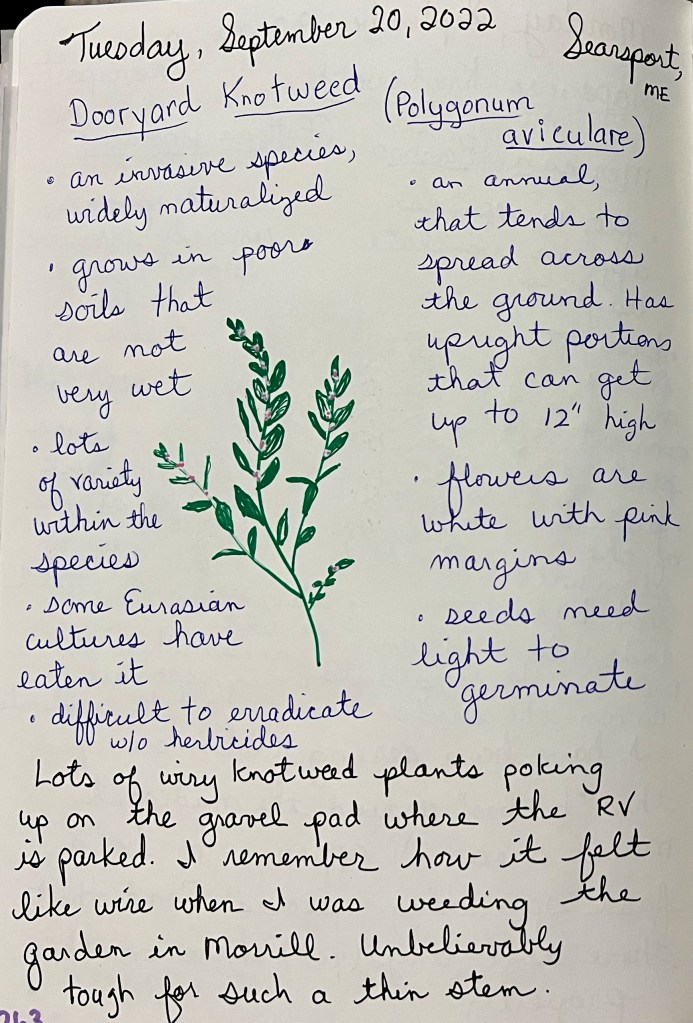 Tuesday, September 20, 2022
Searsport,
ME
Dooryard Knotweed
(Polygonum
aviculare)
• an invasive species,
widely naturalized
• grows in poor
soils that
are not
very wet
• lots
of variety
within the
species
• some Eurasian
cultures have
eaten it
• difficult to erradicate
w/o herbicides
• an annual,
that tends to
spread across
the ground. Has
upright portions
that can get
up to 12" high
• flowers are
white with pink
margins
• seeds need
light to
germinate
Lots of wiry knotweed plants poking
up on the gravel pad where the RV
is parked. I remember how it felt
like wire when I was weeding the
garden in Morrill. Unbelievably
tough for such a thin stem.
263